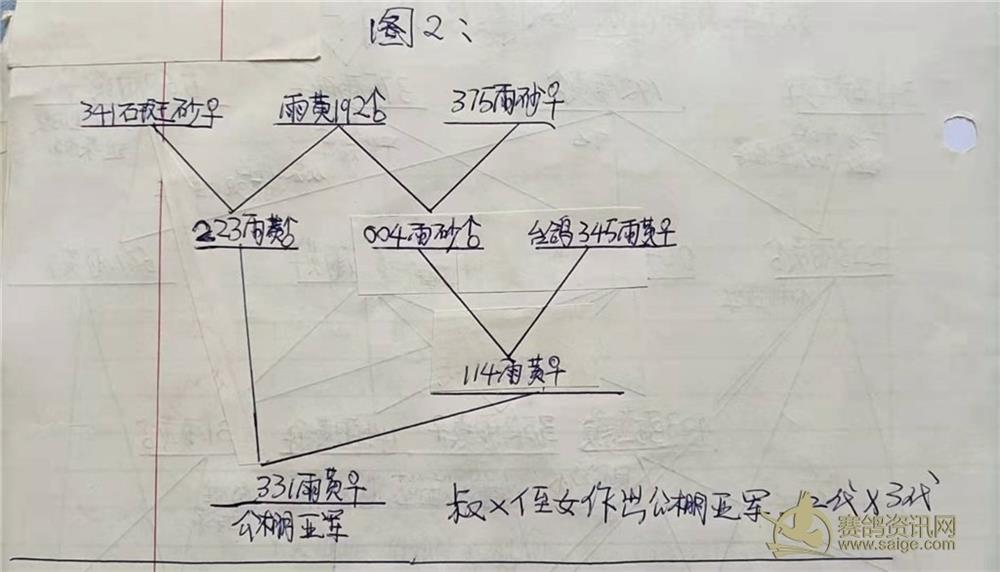 图2:
341石斑砂♀ 雨黄192♂ 375雨砂♀
223雨黄♂ 004雨砂♂ 台鸽345雨黄♀
114雨黄♀
331雨黄♀
公棚亚军
叔×侄女作出公棚亚军. 2代×3代
赛鸽资讯网
www.saige.com